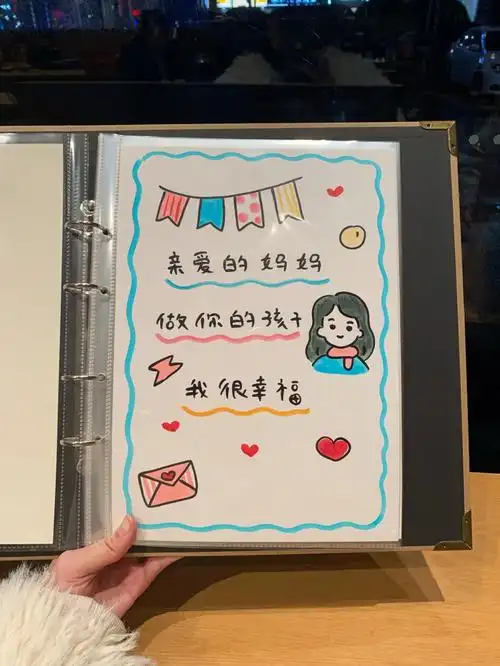 亲爱的妈妈
做你的孩子
我很幸福